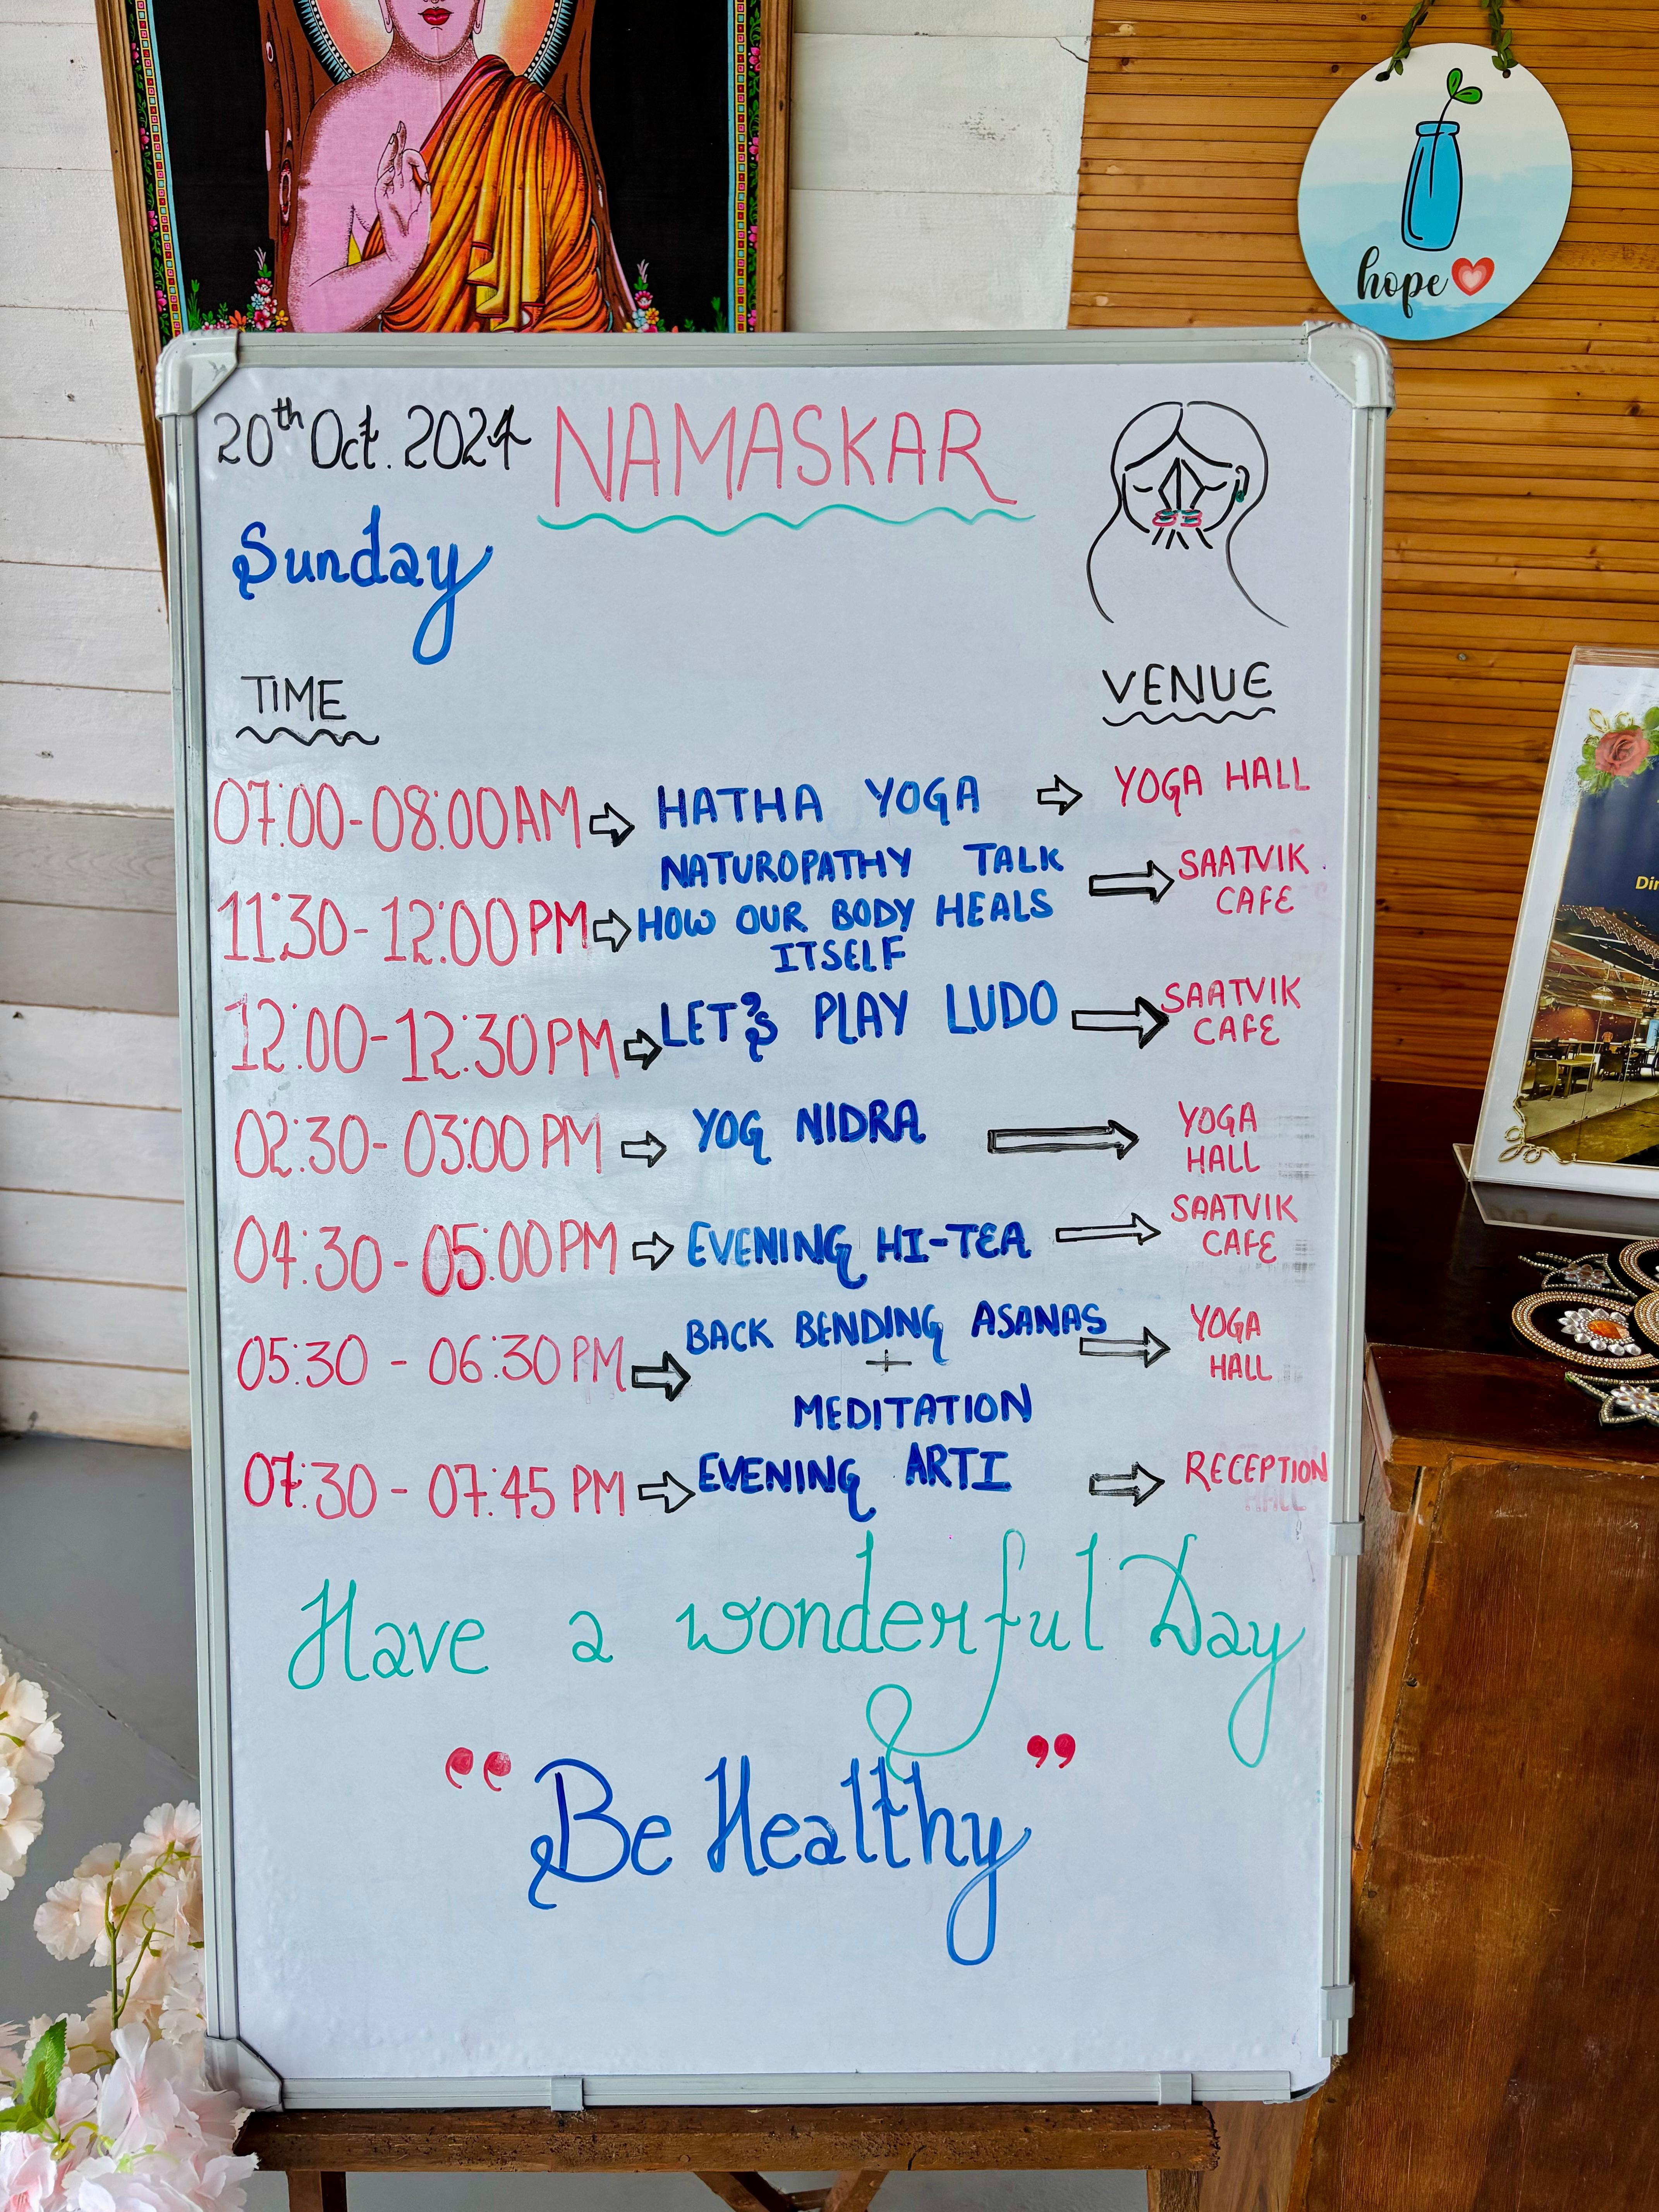 hope
20th Oct. 2024 NAMASKAR
Sunday
TIME VENUE
07:00-08:00AM HATHA YOGA YOGA HALL
11:30-12:00 PM NATUROPATHY TALK
HOW OUR BODY HEALS
ITSELF
SAATVIK
CAFE
12:00-12:30PM LET'S PLAY LUDO SAATVIK
CAFE
02:30-03:00 PM YOG NIDRA YOGA
HALL
04:30-05:00PM EVENING HI-TEA SAATVIK
CAFE
05:30 - 06:30 PM BACK BENDING ASANAS
+
MEDITATION
YOGA
HALL
07:30 - 07:45 PM EVENING ARTI RECEPTION
Have a wonderful Day
"Be Healthy"